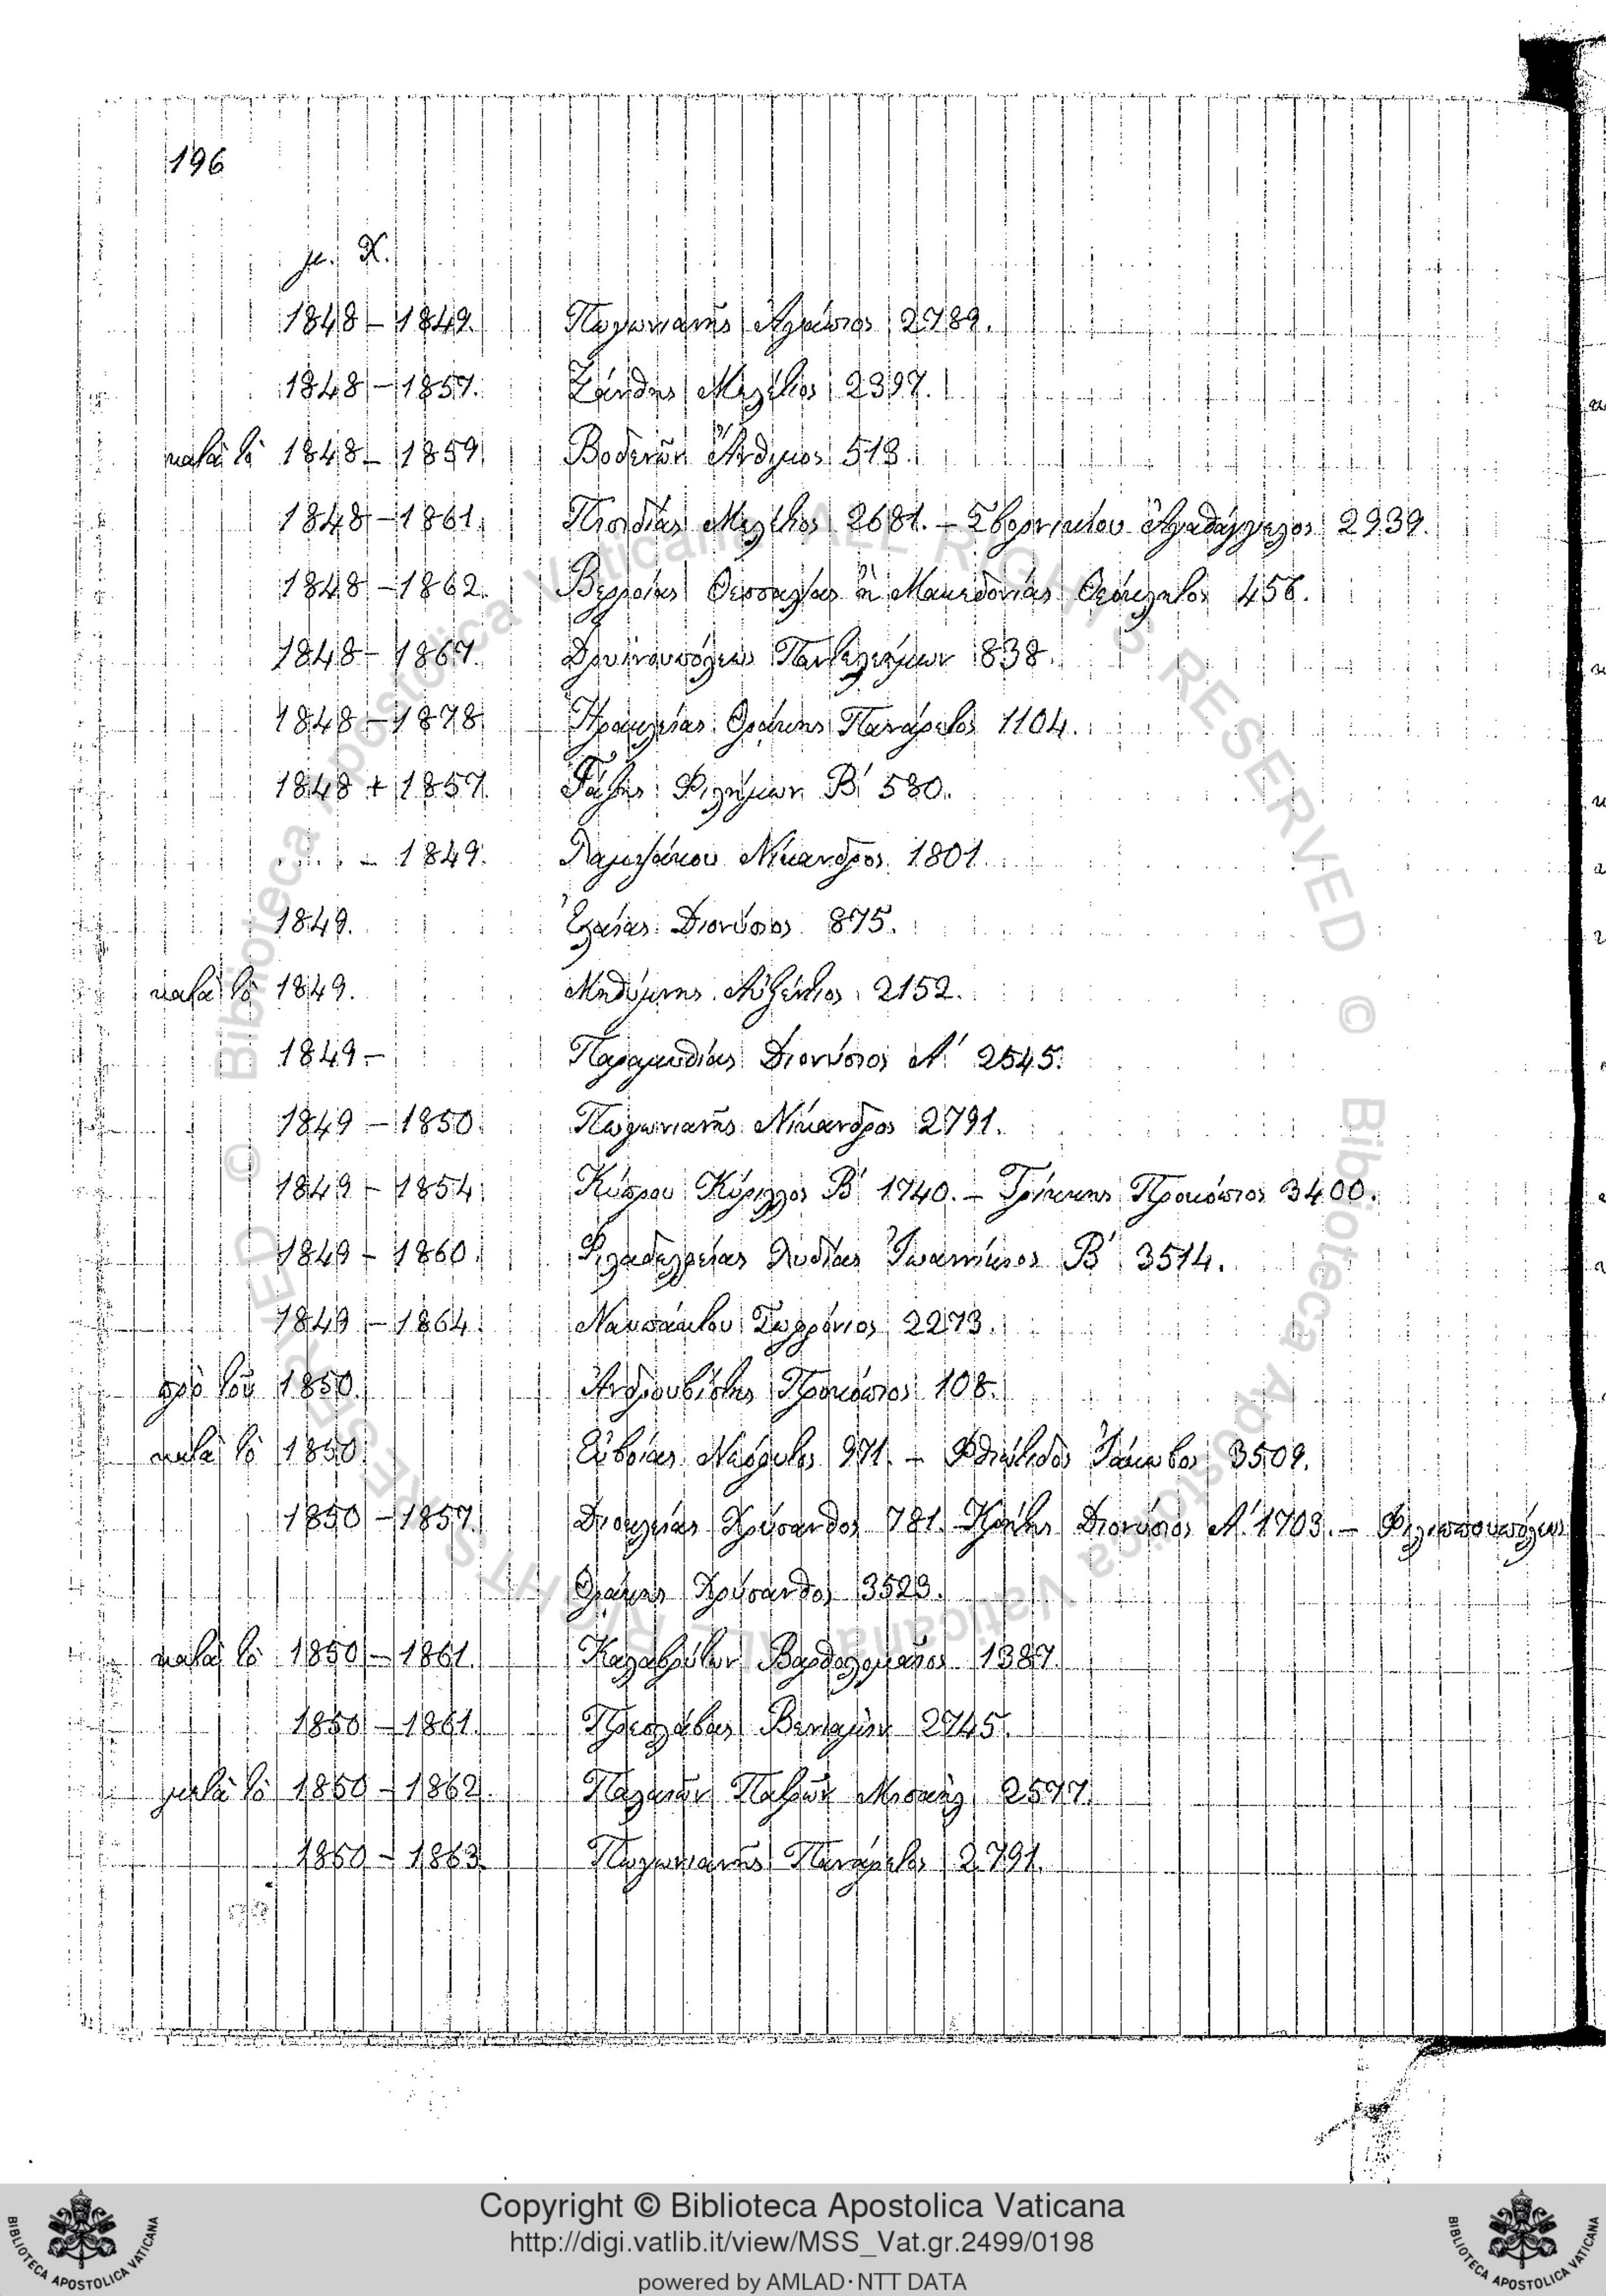 196
μ. Χ.
1848 – 1849. Πωγωνιανῆς Ἀγάπιος 2789.
1848 – 1857. Ξάνθης Μελέτιος 2397.
κατὰ τὸ 1848 – 1859. Βοδενῶν Ἄνθιμος 518.
1848 – 1861. Πισιδίας Μελέτιος 2681. – Σβορνικίου Ἀγαθάγγελος 2939.
1848 – 1862. Βερροίας Θεσσαλίας ἢ Μακεδονίας Θεόκλητος 456.
1848 – 1867. Δρυϊνουπόλεως Παντελεήμων 838.
1848 – 1878. Ἡρακλείας Θράκης Πανάρετος 1104.
1848 + 1857. Γάζης Φιλήμων Β΄ 580.
.... – 1849. Λαμψάκου Νίκανδρος 1801.
1849. Ἐλαίας Διονύσιος 875.
κατὰ τὸ 1849. Μηθύμνης Αὐξέντιος 2152.
1849 – Παραμυθίας Διονύσιος Α΄ 2545.
1849 – 1850. Πωγωνιανῆς Νίκανδρος 2791.
1849 – 1854. Κύπρου Κύριλλος Β΄ 1740. – Τρίκκης Προκόπιος 3400.
1849 – 1860. Φιλαδελφείας Λυδίας Ἰωαννίκιος Β΄ 3514.
1849 – 1864. Ναυπάκτου Σωφρόνιος 2273.
πρὸ τοῦ 1850. Ἀνδρουβίστης Προκόπιος 108.
κατὰ τὸ 1850. Εὐβοίας Νεόφυτος 971. – Φθιώτιδος Ἰάκωβος 3509.
1850 – 1857. Διοκλείας Χρύσανθος 781. Κρήτης Διονύσιος Α΄ 1703. – Φιλιππουπόλεως
Θράκης Χρύσανθος 3523.
κατὰ τὸ 1850 – 1861. Καλαβρύτων Βαρθολομαῖος 1387.
1850 – 1861. Πρεσλάβας Βενιαμὶν 2745.
μετὰ τὸ 1850 – 1862. Παλαιῶν Πατρῶν Μισαὴλ 2577.
1850 – 1863. Πωγωνιανῆς Πανάρετος 2791.
Copyright © Biblioteca Apostolica Vaticana
http://digi.vatlib.it/view/MSS_Vat.gr.2499/0198
powered by AMLAD·NTT DATA